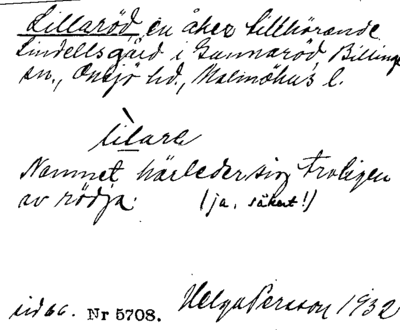 Lillaröd en åker tillhörande
Lindells gård i Gunnaröd, Billinge
sn., Onsjö hd., Malmöhus l.
Namnet härleder sig troligen
av rödja. (ja, säkert!)
Nr 5708. Helga Persson 1932